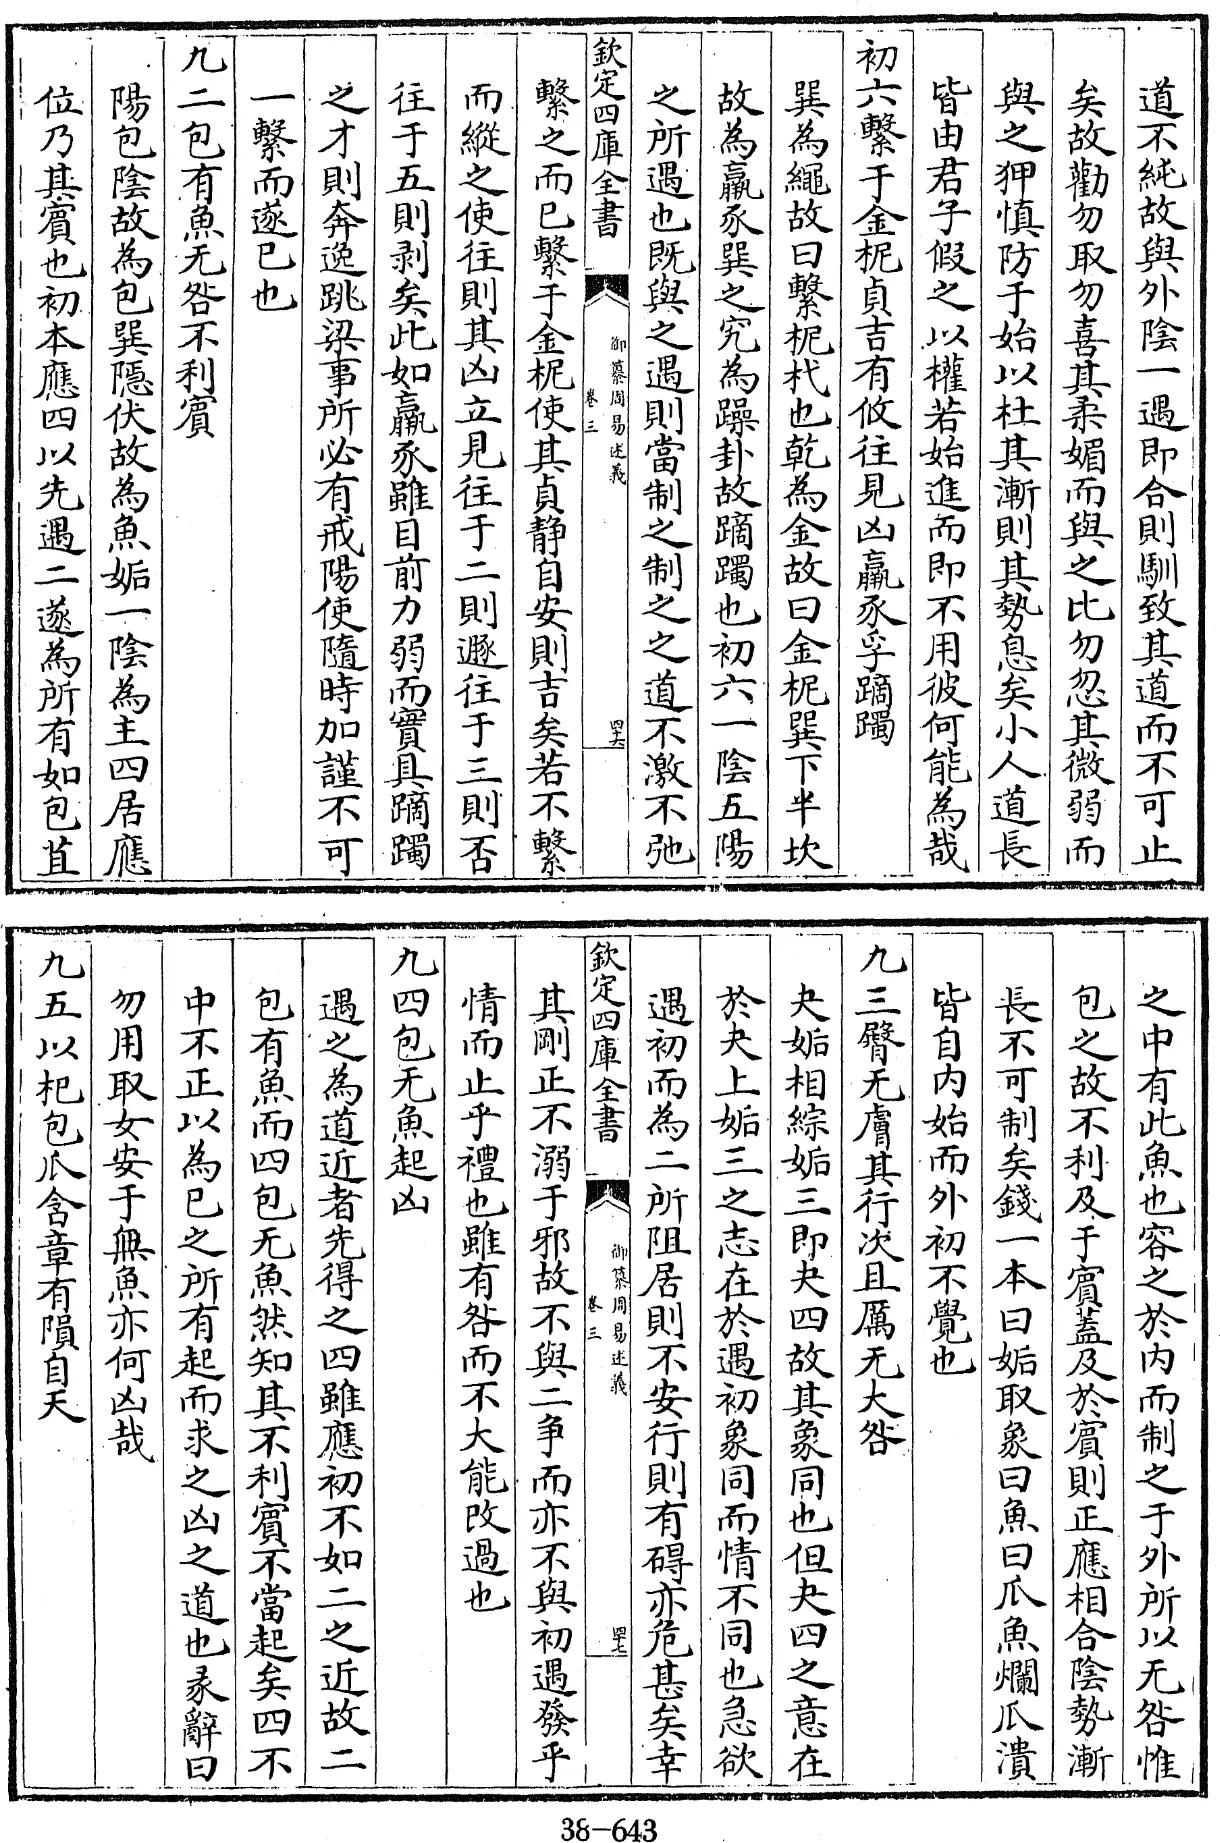 道不純故與外陰一遇即合則馴致其道而不可止
矣故勸勿取勿喜其柔媚而與之比勿忽其微弱而
與之狎慎防于始以杜其漸則其勢息矣小人道長
皆由君子假之以權若始進而即不用彼何能為哉
初六繫于金柅貞吉有攸往見凶羸豕孚蹢躅
巽為繩故曰繫柅杙也乾為金故曰金柅巽下半坎
故為羸豕巽之究為躁卦故蹢躅也初六一陰五陽
之所遇也既與之遇則當制之制之之道不激不弛
欽定四庫全書
御纂周易述義
卷三
四十六
繫之而已繫于金柅使其貞静自安則吉矣若不繫
而縱之使往則其凶立見往于二則遯往于三則否
往于五則剥矣此如羸豕雖目前力弱而實具蹢躅
之才則奔逸跳梁事所必有戒陽使隨時加謹不可
一繫而遂已也
九二包有魚无咎不利賓
陽包陰故為包巽隱伏故為魚姤一陰為主四居應
位乃其賓也初本應四以先遇二遂為所有如包苴
之中有此魚也容之於内而制之于外所以无咎惟
包之故不利及于賓蓋及於賓則正應相合陰勢漸
長不可制矣錢一本曰姤取象曰魚曰瓜魚爛瓜潰
皆自内始而外初不覺也
九三臀无膚其行次且厲无大咎
夬姤相綜姤三即夬四故其象同也但夬四之意在
於夬上姤三之志在於遇初象同而情不同也急欲
遇初而為二所阻居則不安行則有碍亦危甚矣幸
欽定四庫全書
御纂周易述義
卷三
四十七
其剛正不溺于邪故不與二争而亦不與初遇發乎
情而止乎禮也雖有咎而不大能改過也
九四包无魚起凶
遇之為道近者先得之四雖應初不如二之近故二
包有魚而四包无魚然知其不利賓不當起矣四不
中不正以為已之所有起而求之凶之道也彖辭曰
勿用取女安于無魚亦何凶哉
九五以杞包瓜含章有隕自天
38-643